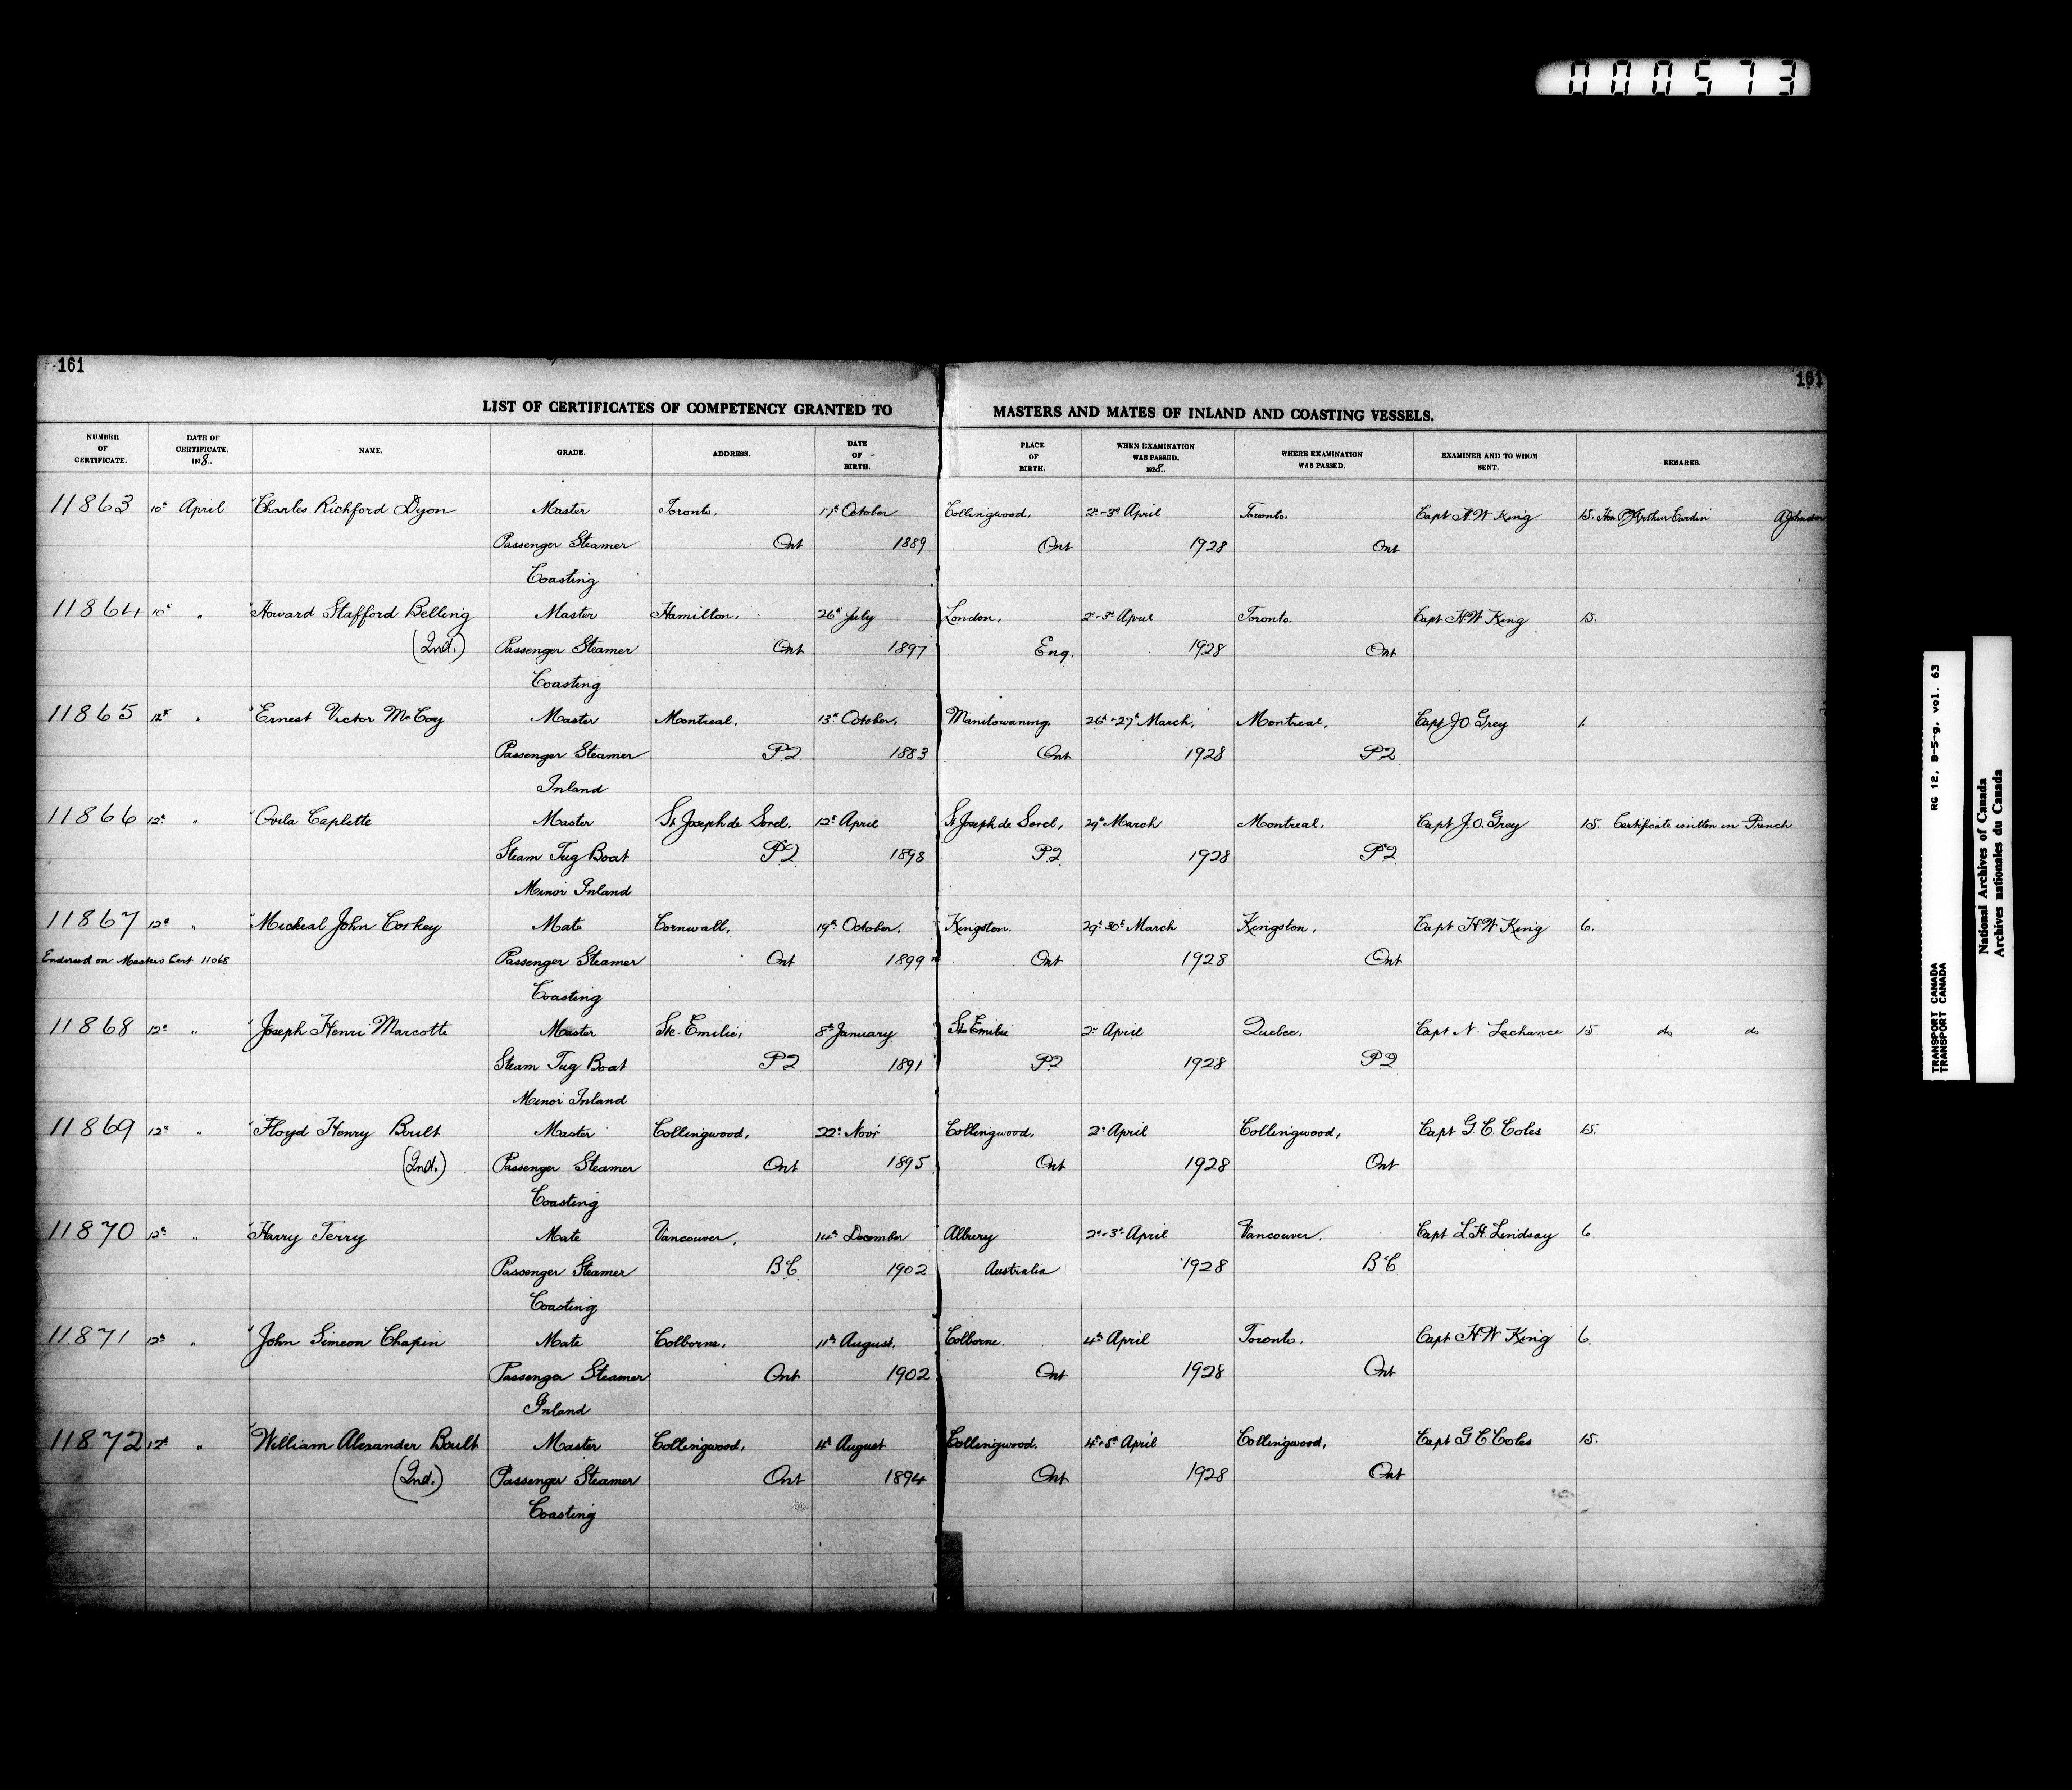 000573
161
161
LIST OF CERTIFICATES OF COMPETENCY GRANTED TO MASTERS AND MATES OF INLAND AND COASTING VESSELS.
NUMBER OF CERTIFICATE. DATE OF CERTIFICATE. 1928.. NAME. GRADE. ADDRESS. DATE OF BIRTH. PLACE OF BIRTH. WHEN EXAMINATION WAS PASSED. 1928.. WHERE EXAMINATION WAS PASSED. EXAMINER AND TO WHOM SENT. REMARKS.
11863 10th April Charles Richford Dyon Master Toronto. 17th October Collingwood, 2d-3d April Toronto. Capt H.W King 15. Hon P Arthur Cardin A Johnston
Passenger Steamer Ont 1889 Ont 1928 Ont
Coasting
11864 10th " Howard Stafford Belling Master Hamilton. 26th July London, 2d-3d April Toronto. Capt H.W King 15.
(2nd.) Passenger Steamer Ont 1897 Eng. 1928 Ont
Coasting
11865 12th " Ernest Victor McCoy Master Montreal. 13th October, Manitowaning. 26th-27th March, Montreal, Capt J O Grey 1.
Passenger Steamer PQ. 1883 Ont 1928 PQ
Inland
11866 12th " Ovila Caplette Master St Joseph de Sorel. 12th April St Joseph de Sorel, 29th March Montreal. Capt J.O. Grey 15. Certificate written in French
Steam Tug Boat PQ 1898 PQ 1928 PQ
Minor Inland
11867 12th " Micheal John Corkey Mate Cornwall, 19th October, Kingston. 29th 30th March Kingston, Capt H W King 6.
Endorsed on Masters Cert 11068 Passenger Steamer Ont 1899 Ont 1928 Ont
Coasting
11868 12th " Joseph Henri Marcotte Master Ste-Emilie, 8th January Ste Emilie 2d April Quebec, Capt N. Lachance 15 do do
Steam Tug Boat PQ 1891 PQ 1928 PQ
Minor Inland
11869 12th " Floyd Henry Boult Master Collingwood, 22d Novr Collingwood, 2d April Collingwood, Capt G C Coles 15.
(2nd.) Passenger Steamer Ont 1895 Ont 1928 Ont
Coasting
11870 12th " Harry Terry Mate Vancouver, 14th December Albury 2d-3d April Vancouver. Capt L.H. Lindsay 6.
Passenger Steamer B.C. 1902 Australia 1928 B.C
Coasting
11871 12th " John Simeon Chapin Mate Colborne. 11th August. Colborne. 4th April Toronto. Capt H.W King 6.
Passenger Steamer Ont 1902 Ont 1928 Ont
Inland
11872 12th " William Alexander Boult Master Collingwood, 4th August Collingwood. 4th-5th April Collingwood, Capt G C Coles 15.
(2nd.) Passenger Steamer Ont 1894 Ont 1928 Ont
Coasting
RG 12, B-5-g, vol. 63
TRANSPORT CANADA
TRANSPORT CANADA
National Archives of Canada
Archives nationales du Canada